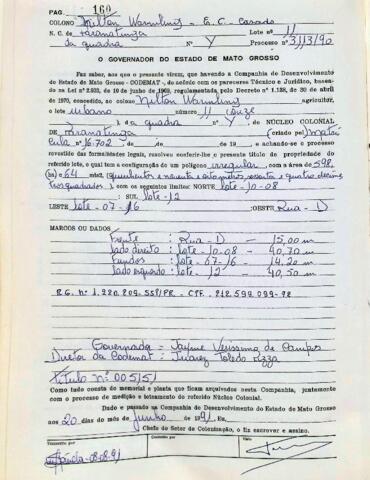 PAG. 160
COLONO Nilton Warmling - E.C. Casado
N. C. de Paranatinga Lote nº 11
da quadra Nº Y Processo nº 3113/90
O GOVERNADOR DO ESTADO DE MATO GROSSO
Faz saber, aos que o presente virem, que havendo a Companhia de Desenvolvimento
do Estado de Mato Grosso - CODEMAT -, de acôrdo com os pareceres Técnico e Jurídico, basea-
do na Lei nº 2.933, de 10 de junho de 1969, regulamentada, pelo Decreto n.º 1.138, de 30 de abril
de 1970, concedido, ao colono Nilton Warmling agricultor,
o lote urbano número 11 (onze
) da quadra nº Y do NÚCLEO COLONIAL
de Paranatinga (criado pel Matrí
cula nº 16.702 de de de 19 e achando-se o processo
revestido das formalidades legais, resolveu conferir-lhe o presente título de propriedade do
referido lote, o qual tem a configuração de um polígono irregular com a área de 598,
(ha) e 64 mts2, (quinhentos e noventa e oito metros, sessenta e quatro decíme
tros quadrados) com os seguintes limites: NORTE lote - 10-08
SUL lote - 12
LESTE lote - 07-16 OESTE Rua - D
MARCOS OU DADOS
Frente : Rua - D - 15,00 m
lado direito : lote - 10-08 - 40,70 m
Fundos : lote - 07-16 - 14,20 m
lado esquerdo : lote - 12 - 40,50 m
Governador = Jayme Veríssimo de Campos
Diretor da Codemat = Juarez Toledo Pizza
Título nº 005151
Como tudo consta do memorial e planta que ficam arquivados nesta Companhia, juntamente
com o processo de medição e loteamento do referido Núcleo Colonial.
Dado e passado na Companhia de Desenvolvimento do Estado de Mato Grosso
aos 20 dias do mês de Junho de 1991. Eu
Chefe do Setor de Colonização, o fiz escrever e assino.
Transcrito por
Conferido por
Visto
08-08-91